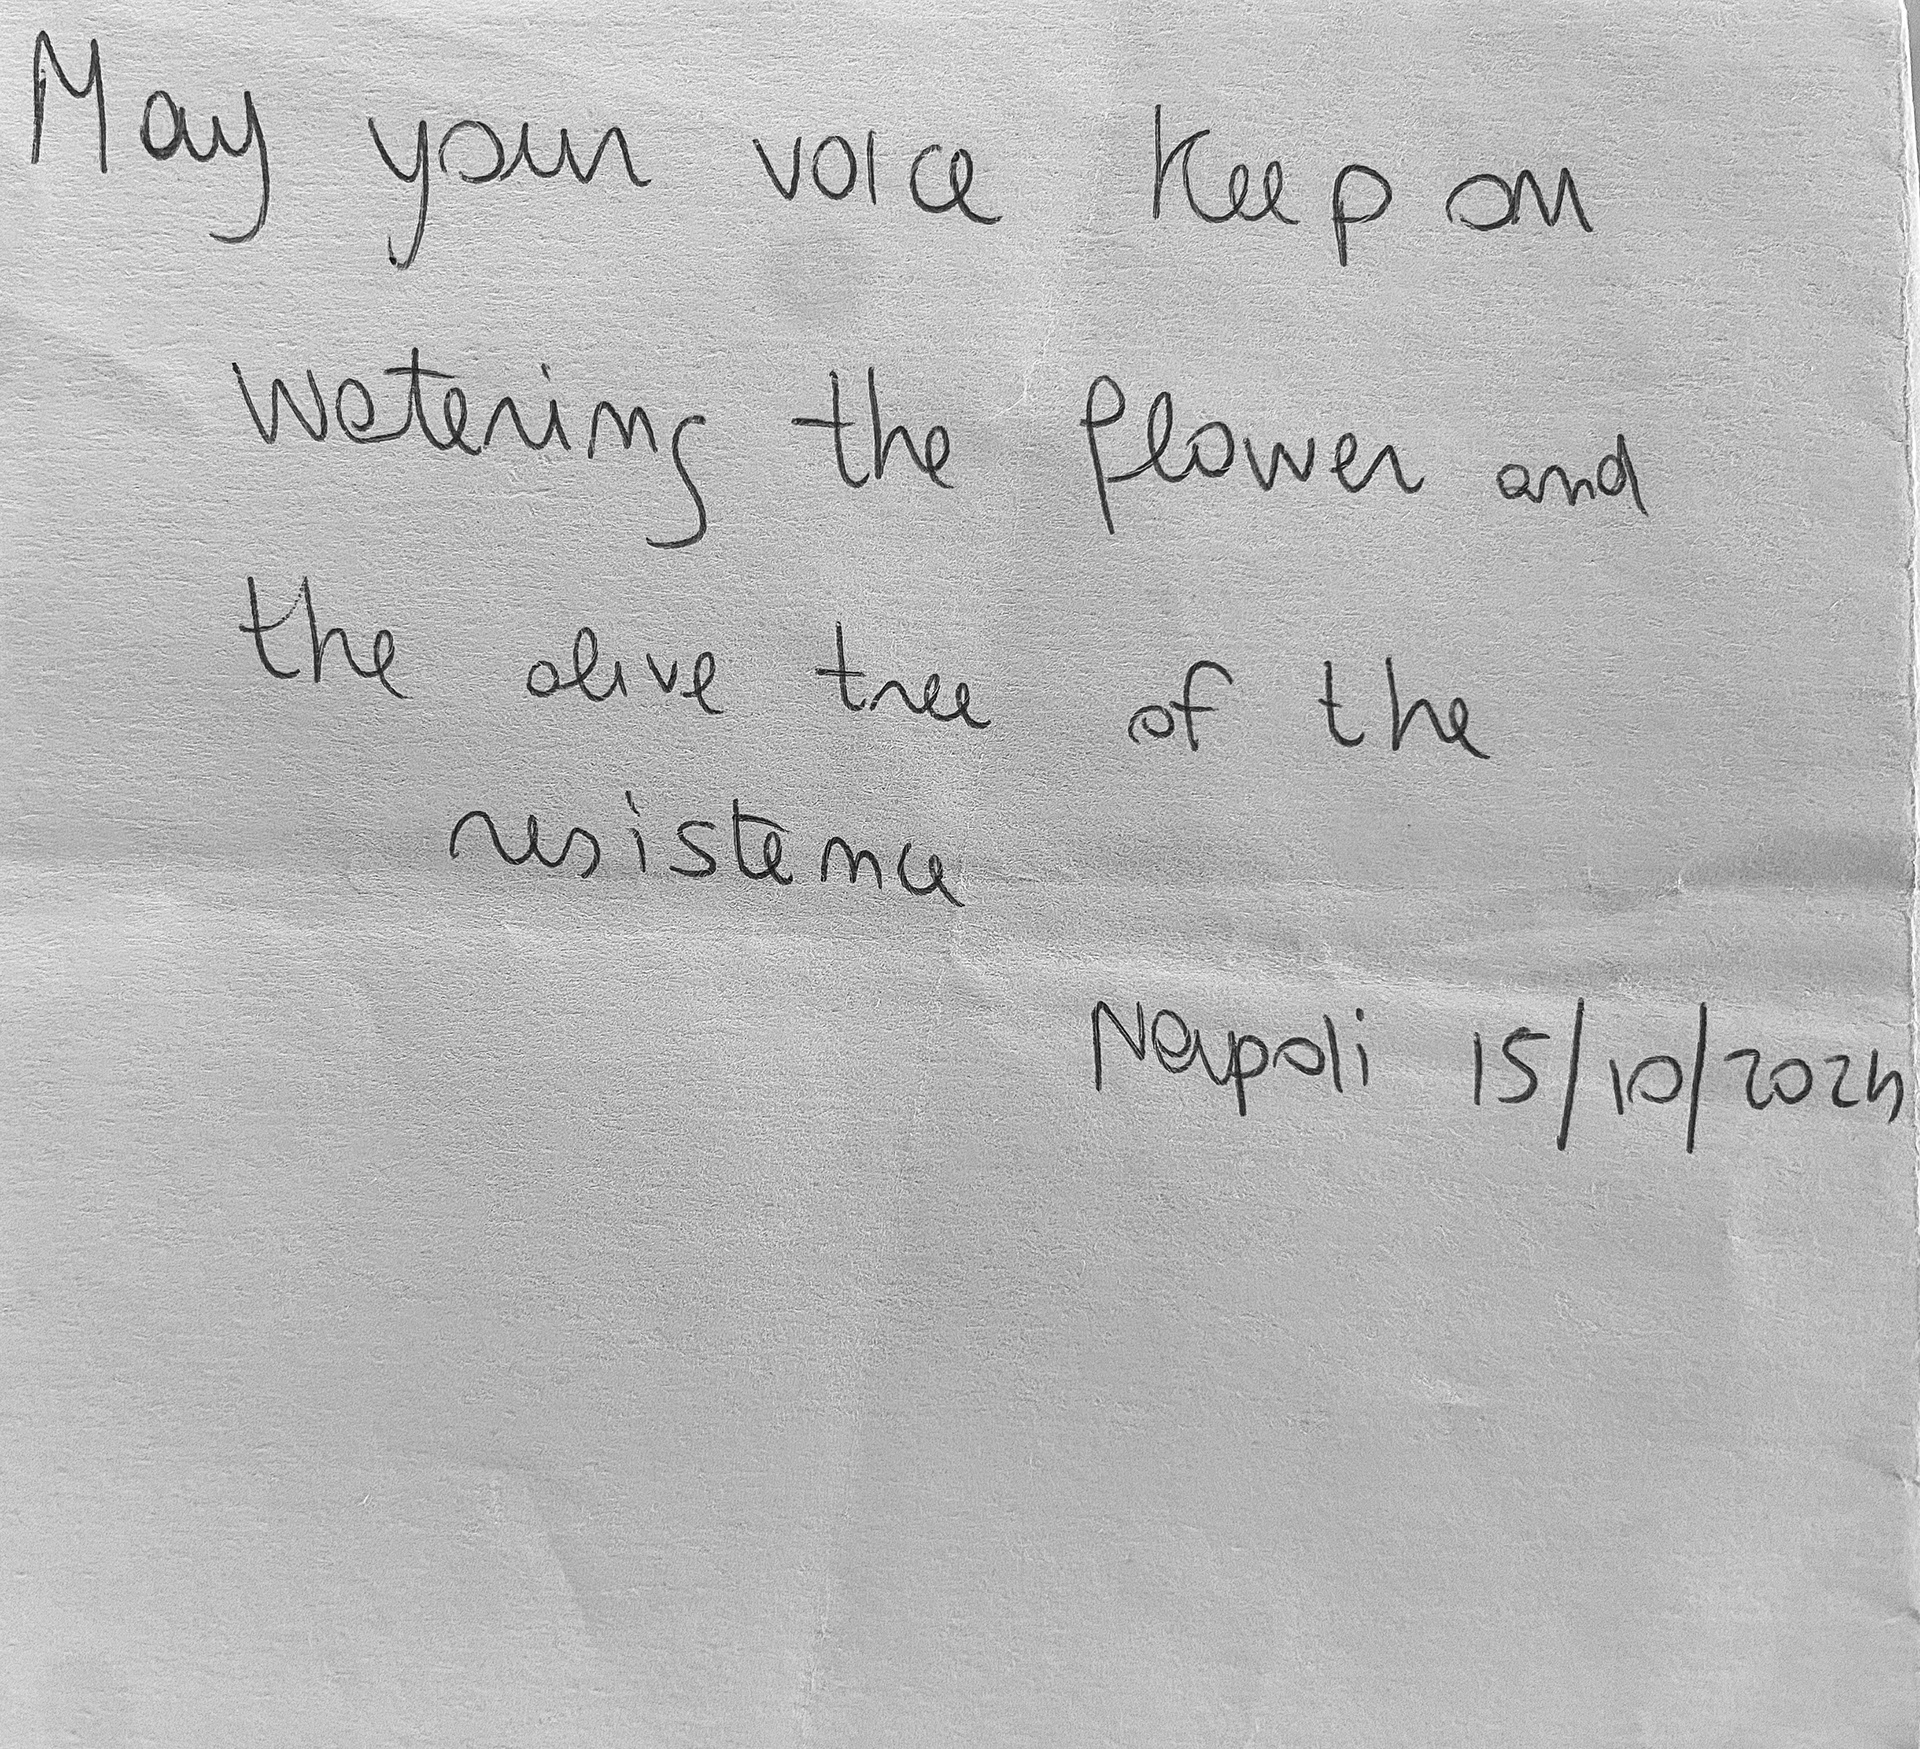 May your voice keep on
watering the flower and
the olive tree of the
resistence
Napoli 15/10/2024